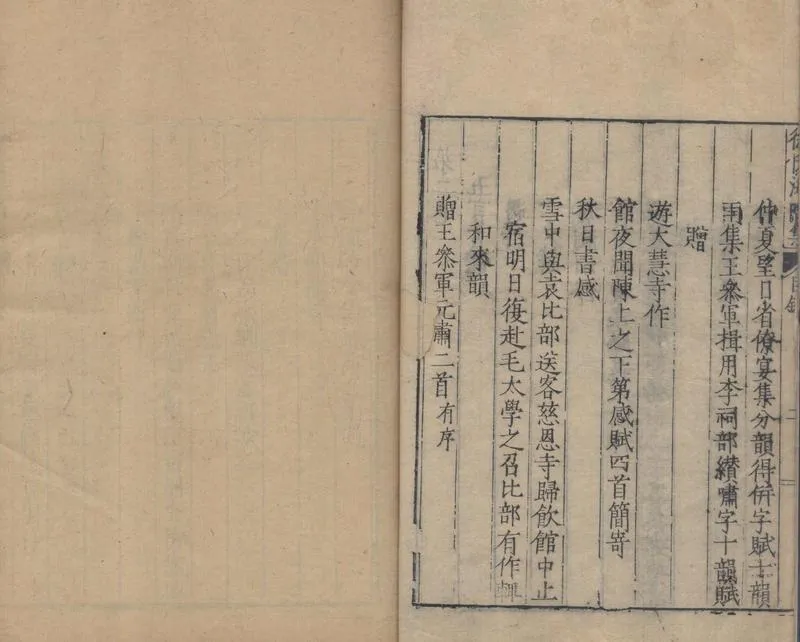 仲夏望日省僚宴集分韻得倂字賦十韻
雨集王叅軍揖用李祠部纉嘯字十韻賦
贈
遊大慧寺作
館夜聞陳上之下第感賦四首簡寄
秋日書感
雪中與袁比部送客慈恩寺歸飮館中止
宿明日復赴毛太學之召比部有作輙
和來韻
贈王叅軍元肅二首有序
目錄
二